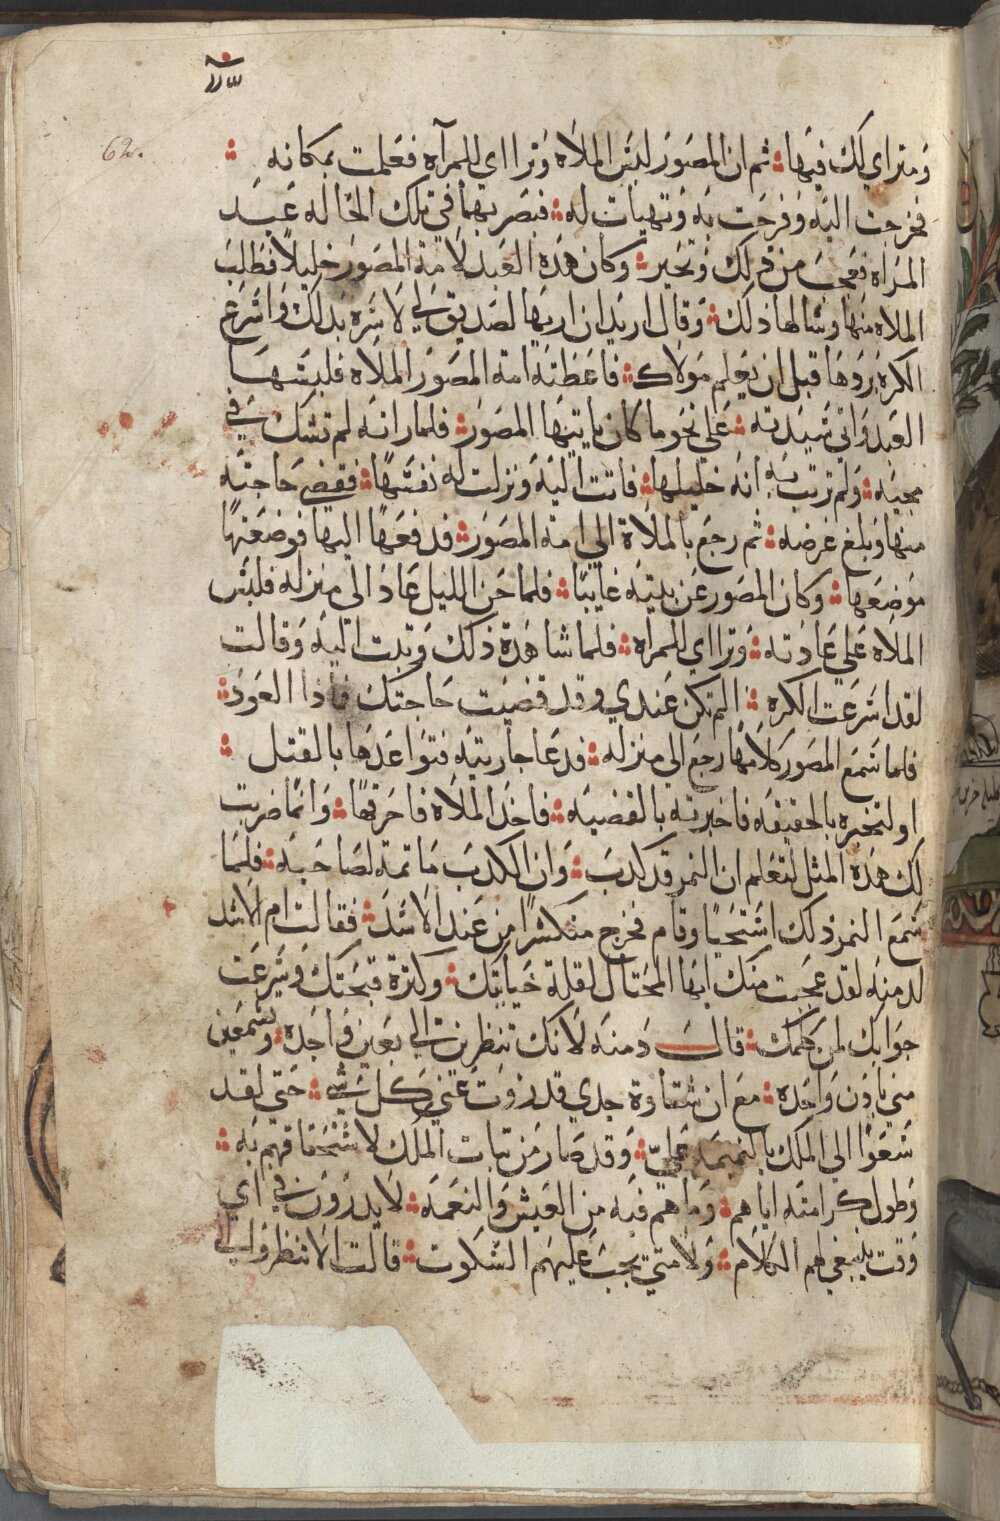 62.
ومتراي لك فيها ثم ان المصور لبس الملاه وترااي للمرآه فعلمت بمكانه
فخرجت اليه وفرحت به وتهيات له فبصر بهما في تلك الحاله عبد
المراه فعجب من ذلك وتحير وكان هذه العبد لامة المصور خليلاً فطلب
الملاه منها وسالها ذلك وقال اريد ان اريها لصديق لي لاسره بذلك واسرع
الكره بردها قبل ان يعلم مولاك فاعطته امة المصور الملاه فلبسها
العبد واتى سيدته على نحو ما كان ياتيها المصور فلما راته لم تشك في
مجيه ولم ترتب به انه خليلها فاتت اليه وبزلت له نفسها فقضى حاجته
منها وبلغ غرضه ثم رجع بالملاة الي امة المصور فدفعها اليها فوضعتها
موضعها وكان المصور عن بيته غايبًا فلما جن الليل عاد الى منزله فلبس
الملاه علي عادته وترااي للمراه فلما شاهدة ذلك وتبت اليه وقالت
لقد اسرعت الكره الم تكن عندي وقد قضيت حاجتك فاذا العود
فلما سمع المصور كلامها رجع الي منزله فدعا جاريته فتواعدها بالقتل
او لتخبره بالحقيقه فاخبرته بالقضيه فاخذ الملاه فاحرقها وانما ضربت
لك هذه المثل لتعلم ان النمر قد كدب وان الكدب ما تمة لصاحبه فلما
سمع النمر ذلك استحيا وقام فخرج منكسرًا من عند الاسد فقالت ام الاسد
لدمنه لقد عجبت منك ايها المحتال لقلة حيايك وكترة قبحتك وسرعت
جوابك لمن كلمك قالــ دمنه لانك تنظرين الي بعين واحده وتسمعين
مني باذن واحده مع ان شقاوة جدي قد زوت عني كل شي حتى لقد
سعوا الي الملك بالنميمه عليّ وقد صار من تبات الملك لاستخفافهم به
وطول كرامته اياهم وما هم فيه من العيش والنعمه لا يدرون في اي
وقت ينبغي لهم الكلام ولا متي يجب عليهم السكوت قالت الا تنظروا الي